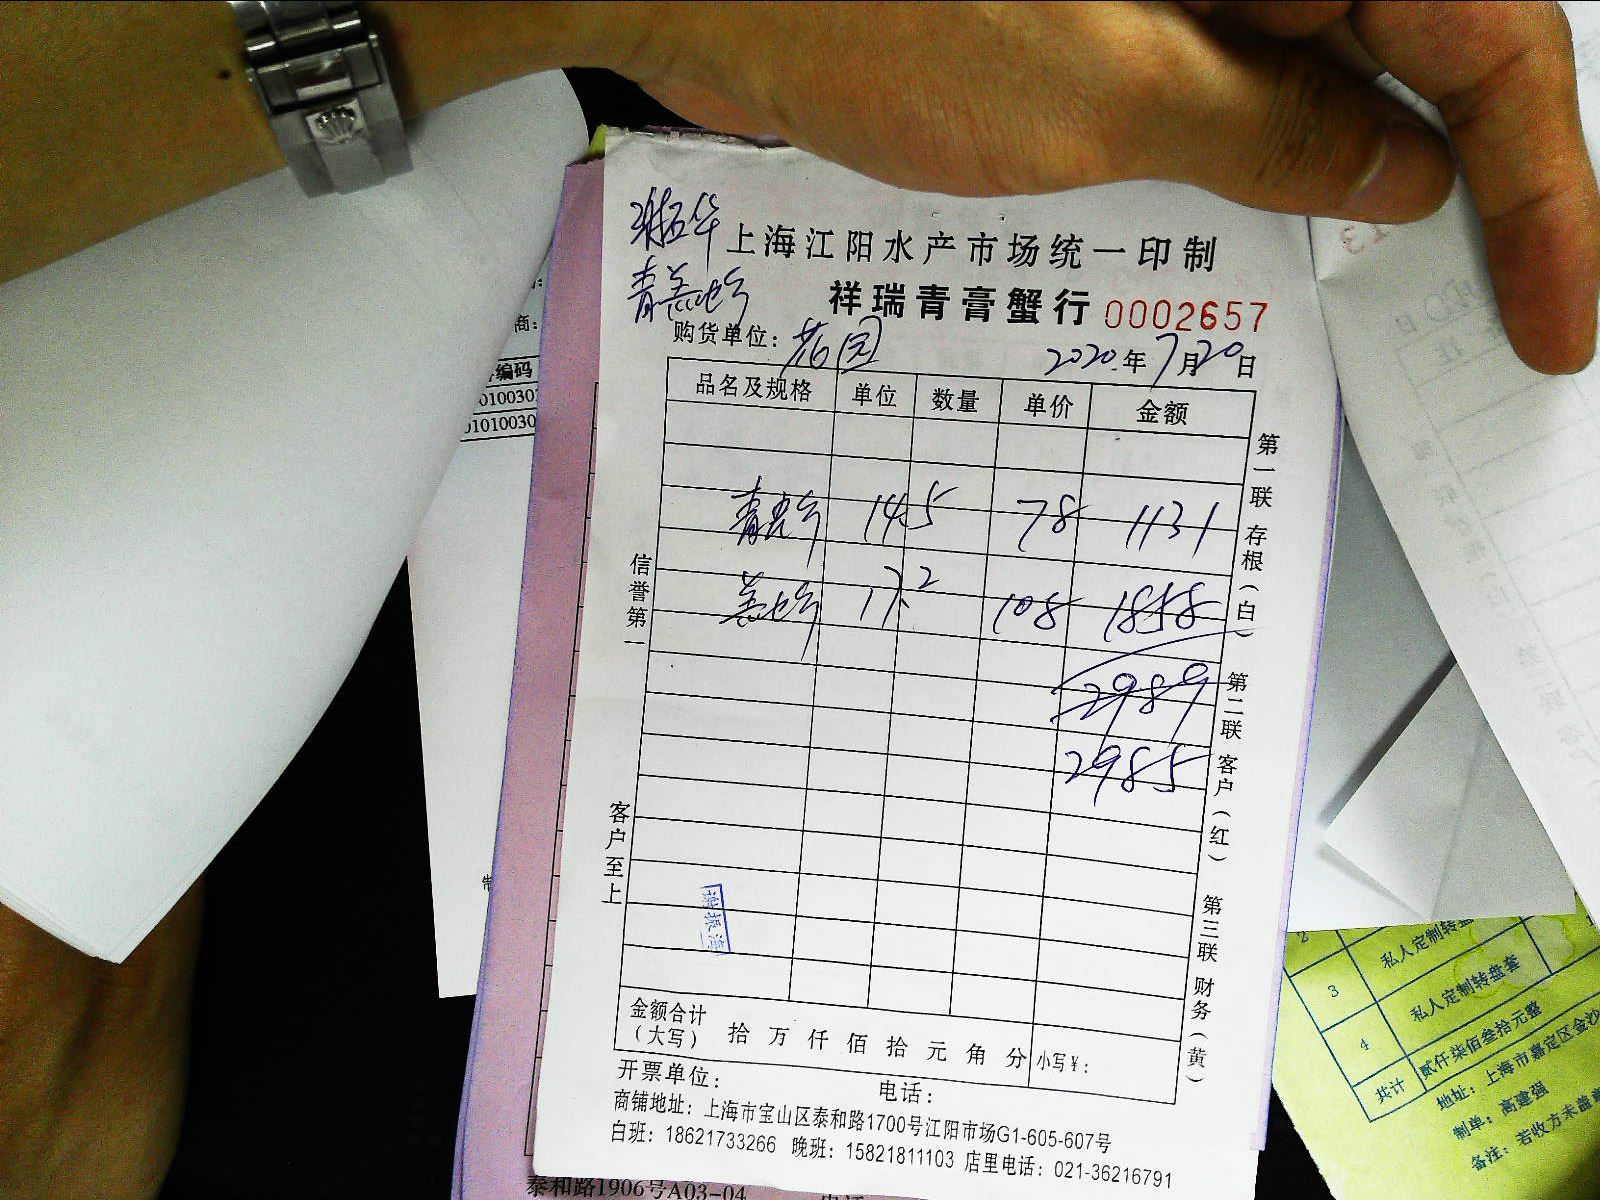 上海江阳水产市场统一印制
祥瑞青膏蟹行 0002657
购货单位：花园
2020.年7月20日
品名及规格 单位 数量 单价 金额
14.5 78 1131
17.2 108 1858
2989
2985
信誉第一
客户至上
第一联 存根（白） 第二联 客户（红） 第三联 财务（黄）
谢振海
金额合计
（大写） 拾 万 仟 佰 拾 元 角 分 小写￥：
开票单位： 电话：
商铺地址：上海市宝山区泰和路1700号江阳市场G1-605-607号
白班：18621733266 晚班：15821811103 店里电话：021-36216791
泰和路1906号A03-04
商：
编码
010030
01010030
2 私人定制转盘
3 私人定制转盘套
4
共计 贰仟柒佰叁拾元整
地址：上海市嘉定区金沙
制单：高建强
备注：若收方未盖